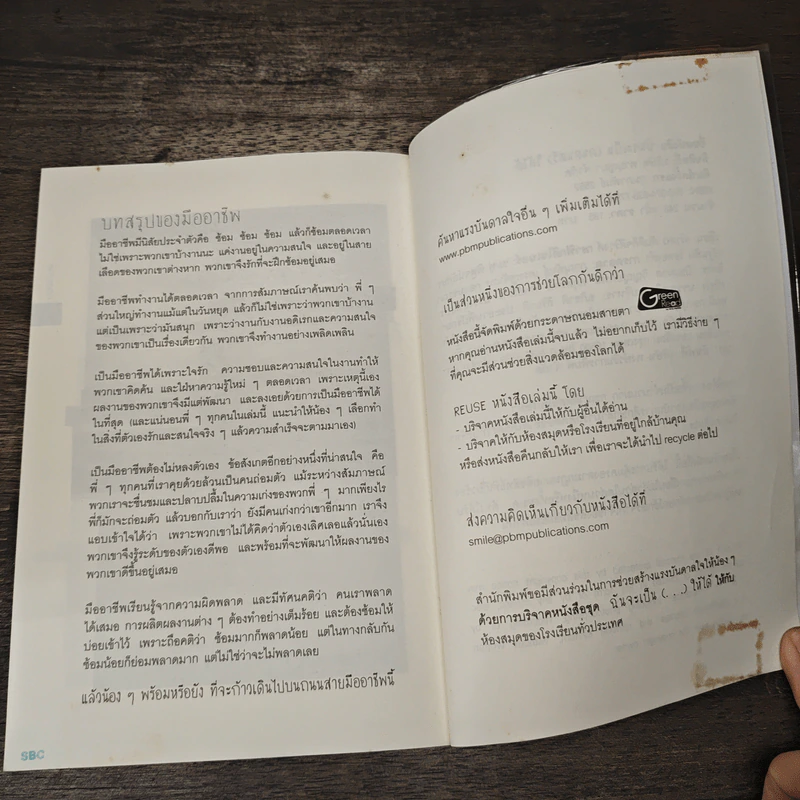 บทสรุปของมืออาชีพ
มืออาชีพมีนิสัยประจำตัวคือ ซ้อม ซ้อม ซ้อม แล้วก็ซ้อมตลอดเวลา
ไม่ใช่เพราะพวกเขาบ้างานนะ แต่งานอยู่ในความสนใจ และอยู่ในสาย
เลือดของพวกเขาต่างหาก พวกเขาจึงรักที่จะฝึกซ้อมอยู่เสมอ
มืออาชีพทำงานได้ตลอดเวลา จากการสัมภาษณ์เราค้นพบว่า พี่ ๆ
ส่วนใหญ่ทำงานแม้แต่ในวันหยุด แล้วก็ไม่ใช่เพราะว่าพวกเขาบ้างาน
แต่เป็นเพราะว่ามันสนุก เพราะว่างานกับงานอดิเรกและความสนใจ
ของพวกเขาเป็นเรื่องเดียวกัน พวกเขาจึงทำงานอย่างเพลิดเพลิน
เป็นมืออาชีพได้เพราะใจรัก ความชอบและความสนใจในงานทำให้
พวกเขาคิดค้น และใฝ่หาความรู้ใหม่ ๆ ตลอดเวลา เพราะเหตุนี้เอง
ผลงานของพวกเขาจึงมีแต่พัฒนา และลงเอยด้วยการเป็นมืออาชีพได้
ในที่สุด (และแน่นอนพี่ ๆ ทุกคนในเล่มนี้ แนะนำให้น้อง ๆ เลือกทำ
ในสิ่งที่ตัวเองรักและสนใจจริง ๆ แล้วความสำเร็จจะตามมาเอง)
เป็นมืออาชีพต้องไม่หลงตัวเอง ข้อสังเกตอีกอย่างหนึ่งที่น่าสนใจ คือ
พี่ ๆ ทุกคนที่เราคุยด้วยล้วนเป็นคนถ่อมตัว แม้ระหว่างสัมภาษณ์
พวกเราจะชื่นชมและปลาบปลื้มในความเก่งของพวกพี่ ๆ มากเพียงไร
พี่ก็มักจะถ่อมตัว แล้วบอกกับเราว่า ยังมีคนเก่งกว่าเขาอีกมาก เราจึง
แอบเข้าใจได้ว่า เพราะพวกเขาไม่ได้คิดว่าตัวเองเลิศเลอแล้วนั่นเอง
พวกเขาจึงรู้ระดับของตัวเองดีพอ และพร้อมที่จะพัฒนาให้ผลงานของ
พวกเขาดีขึ้นอยู่เสมอ
มืออาชีพเรียนรู้จากความผิดพลาด และมีทัศนคติว่า คนเราพลาด
ได้เสมอ การผลิตผลงานต่าง ๆ ต้องทำอย่างเต็มร้อย และต้องซ้อมให้
บ่อยเข้าไว้ เพราะถือคติว่า ซ้อมมากก็พลาดน้อย แต่ในทางกลับกัน
ซ้อมน้อยก็ย่อมพลาดมาก แต่ไม่ใช่ว่าจะไม่พลาดเลย
แล้วน้อง ๆ พร้อมหรือยัง ที่จะก้าวเดินไปบนถนนสายมืออาชีพนี้
SBC
ค้นหาแรงบันดาลใจอื่น ๆ เพิ่มเติมได้ที่
www.pbmpublications.com
เป็นส่วนหนึ่งของการช่วยโลกกันดีกว่า
Green Read
หนังสือนี้จัดพิมพ์ด้วยกระดาษถนอมสายตา
หากคุณอ่านหนังสือเล่มนี้จบแล้ว ไม่อยากเก็บไว้ เรามีวิธีง่าย ๆ
ที่คุณจะมีส่วนช่วยสิ่งแวดล้อมของโลกได้
REUSE หนังสือเล่มนี้ โดย
- บริจาคหนังสือเล่มนี้ให้กับผู้อื่นได้อ่าน
- บริจาคให้กับห้องสมุดหรือโรงเรียนที่อยู่ใกล้บ้านคุณ
หรือส่งหนังสือคืนกลับให้เรา เพื่อเราจะได้นำไป recycle ต่อไป
ส่งความคิดเห็นเกี่ยวกับหนังสือได้ที่
smile@pbmpublications.com
สำนักพิมพ์ขอมีส่วนร่วมในการช่วยสร้างแรงบันดาลใจให้น้อง ๆ
ด้วยการบริจาคหนังสือชุด ฉันจะเป็น (...) ให้ได้ ให้กับ
ห้องสมุดของโรงเรียนทั่วประเทศ